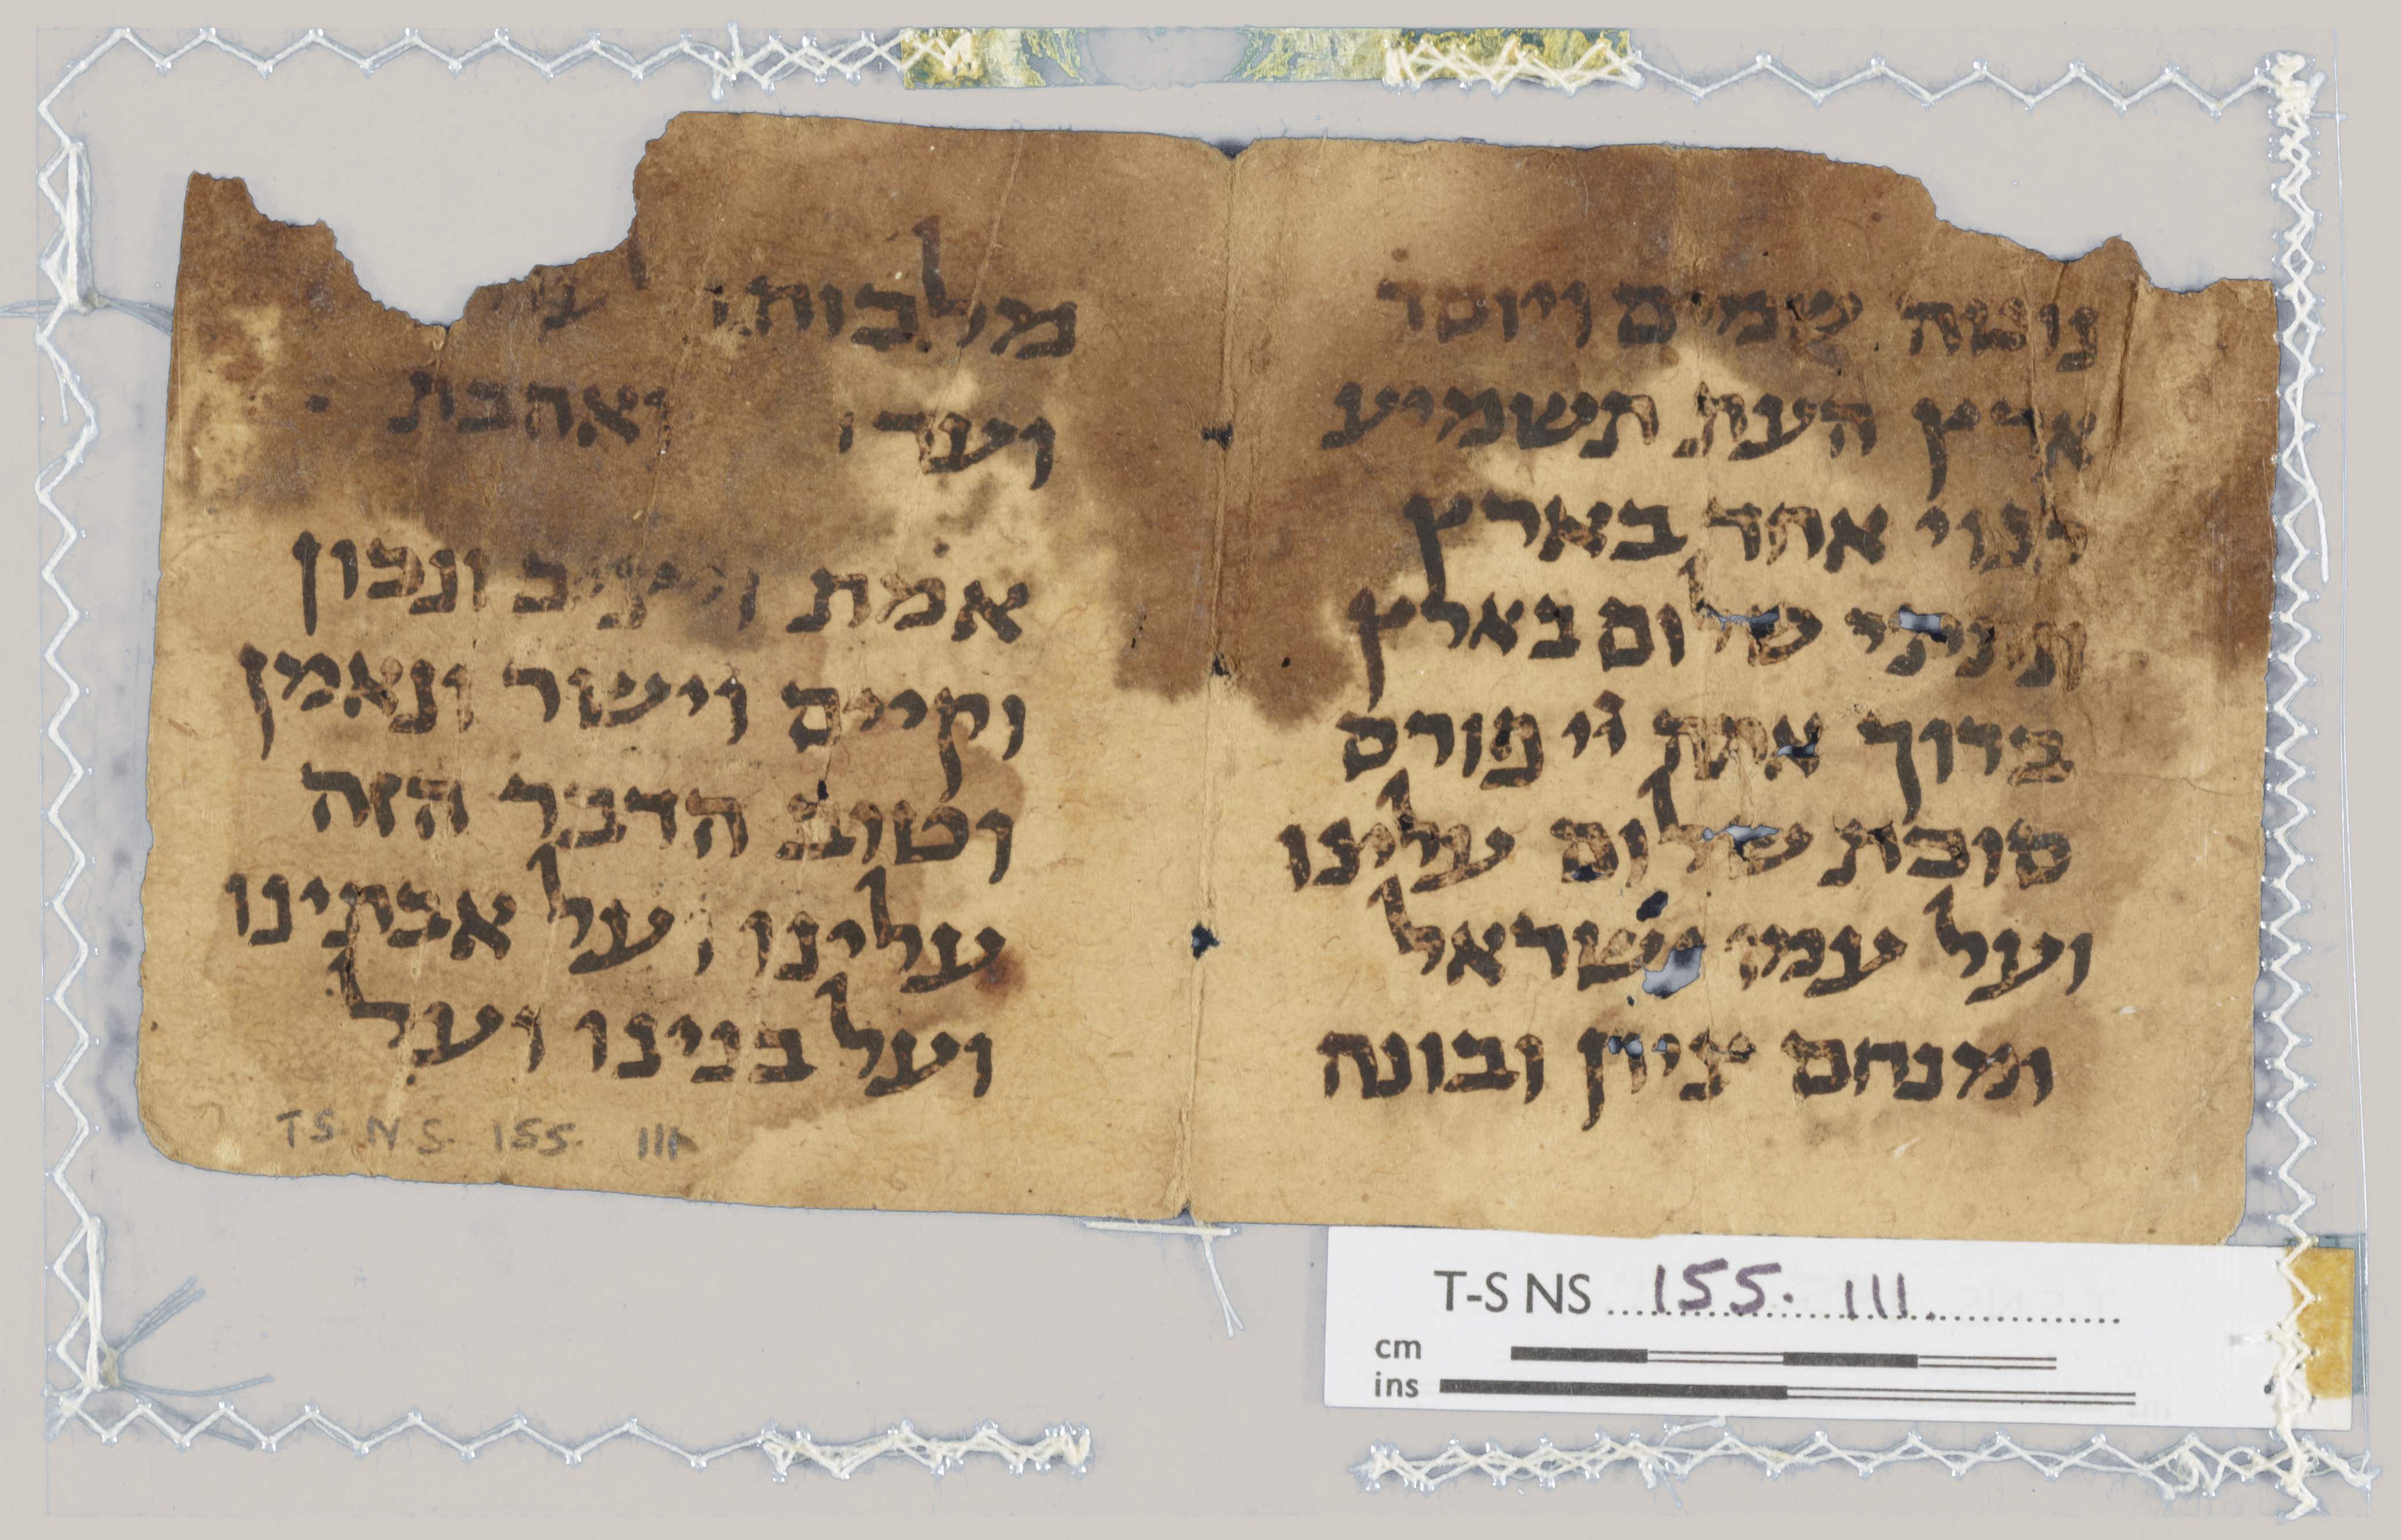 נוטה שמים ויוסד
ארץ העת תשמיע
לגוי אחד בארץ
ונתתי שלום בארץ
ברוך אתה יי פורס
סוכת שלום עלינו
ועל עמו ישראל
ומנחם ציון ובונה
מלכותו
ועד ואהבת
אמת ויציב ונכון
וקיים וישר ונאמן
וטוב הדבר הזה
עלינו ועל אבתינו
ועל בנינו ועל
T-S. N.S. 155. 111
T-S NS 155. 111.
cm
ins